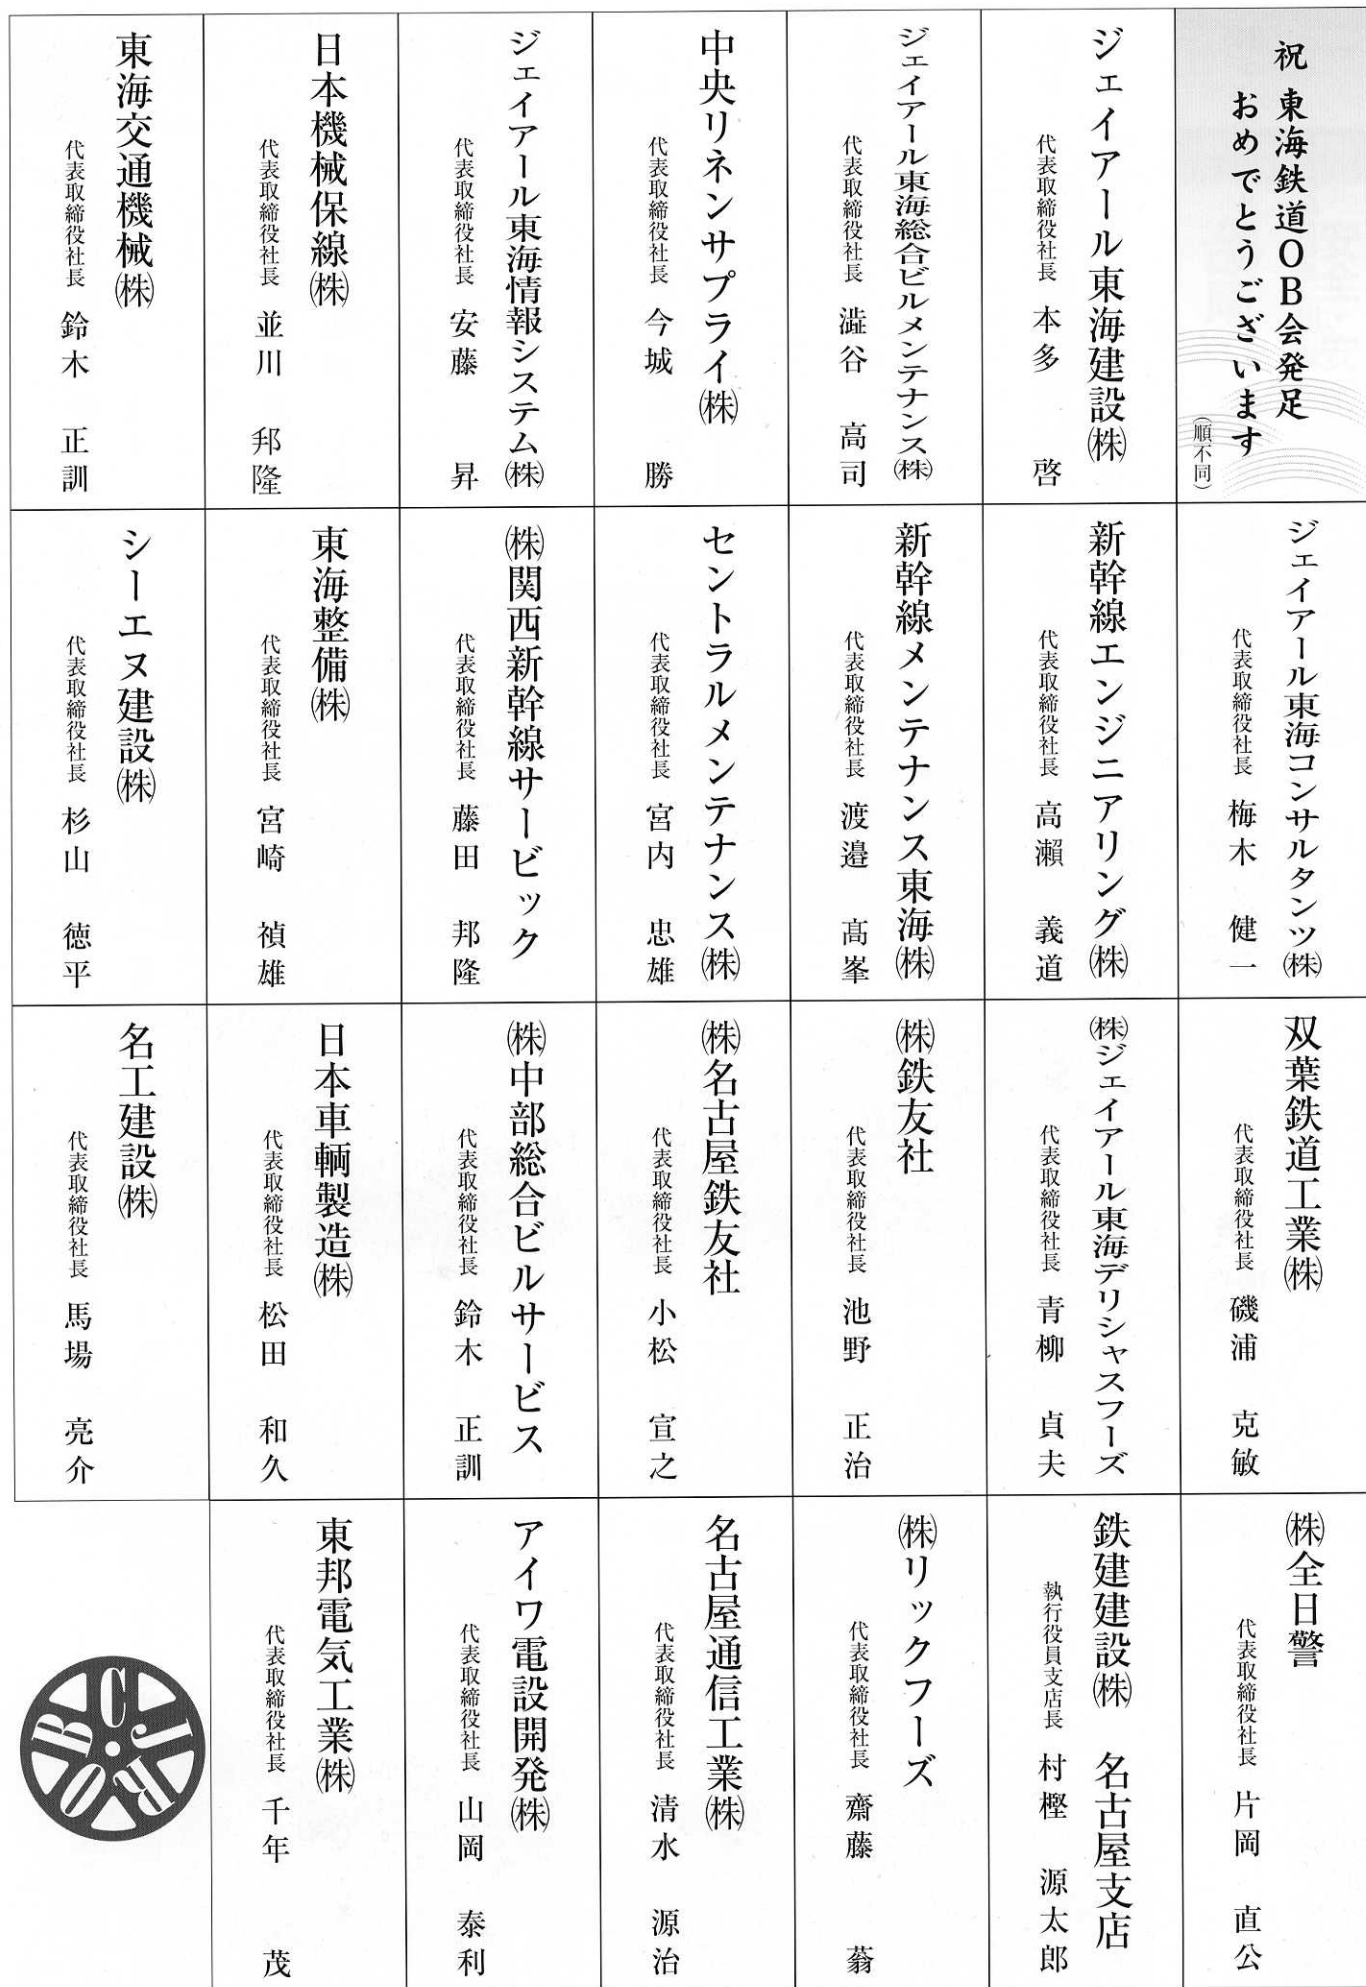 祝 東海鉄道OB会発足
おめでとうございます
(順不同)
ジェイアール東海建設㈱
代表取締役社長 本多 啓
ジェイアール東海総合ビルメンテナンス㈱
代表取締役社長 澁谷 高司
中央リネンサプライ㈱
代表取締役社長 今城 勝
ジェイアール東海情報システム㈱
代表取締役社長 安藤 昇
日本機械保線㈱
代表取締役社長 並川 邦隆
東海交通機械㈱
代表取締役社長 鈴木 正訓
ジェイアール東海コンサルタンツ㈱
代表取締役社長 梅木 健一
新幹線エンジニアリング㈱
代表取締役社長 高瀬 義道
新幹線メンテナンス東海㈱
代表取締役社長 渡邉 髙峯
セントラルメンテナンス㈱
代表取締役社長 宮内 忠雄
㈱関西新幹線サービック
代表取締役社長 藤田 邦隆
東海整備㈱
代表取締役社長 宮崎 禎雄
シーエヌ建設㈱
代表取締役社長 杉山 徳平
双葉鉄道工業㈱
代表取締役社長 磯浦 克敏
㈱ジェイアール東海デリシャスフーズ
代表取締役社長 青柳 貞夫
㈱鉄友社
代表取締役社長 池野 正治
㈱名古屋鉄友社
代表取締役社長 小松 宣之
㈱中部総合ビルサービス
代表取締役社長 鈴木 正訓
日本車輌製造㈱
代表取締役社長 松田 和久
名工建設㈱
代表取締役社長 馬場 亮介
㈱全日警
代表取締役社長 片岡 直公
鉄建建設㈱ 名古屋支店
執行役員支店長 村樫 源太郎
㈱リックフーズ
代表取締役社長 齋藤 蓊
名古屋通信工業㈱
代表取締役社長 清水 源治
アイワ電設開発㈱
代表取締役社長 山岡 泰利
東邦電気工業㈱
代表取締役社長 千年 茂